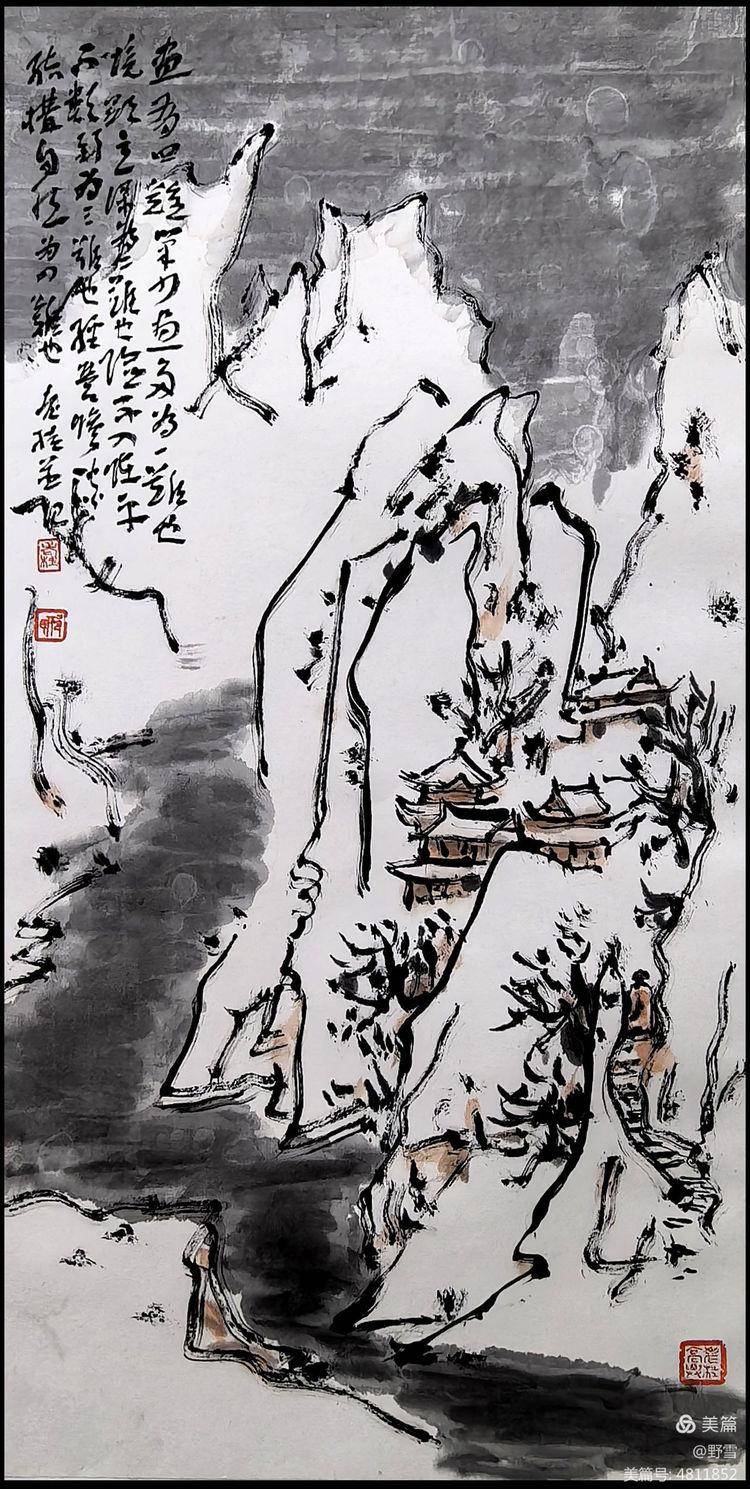 画有四难笔少画多为一难也
境显意深为二难也险不入怪平
不类弱为三难也经营惨淡
结构自然为四难也 老桂并记
美篇
@野雪
美篇号: 4811852